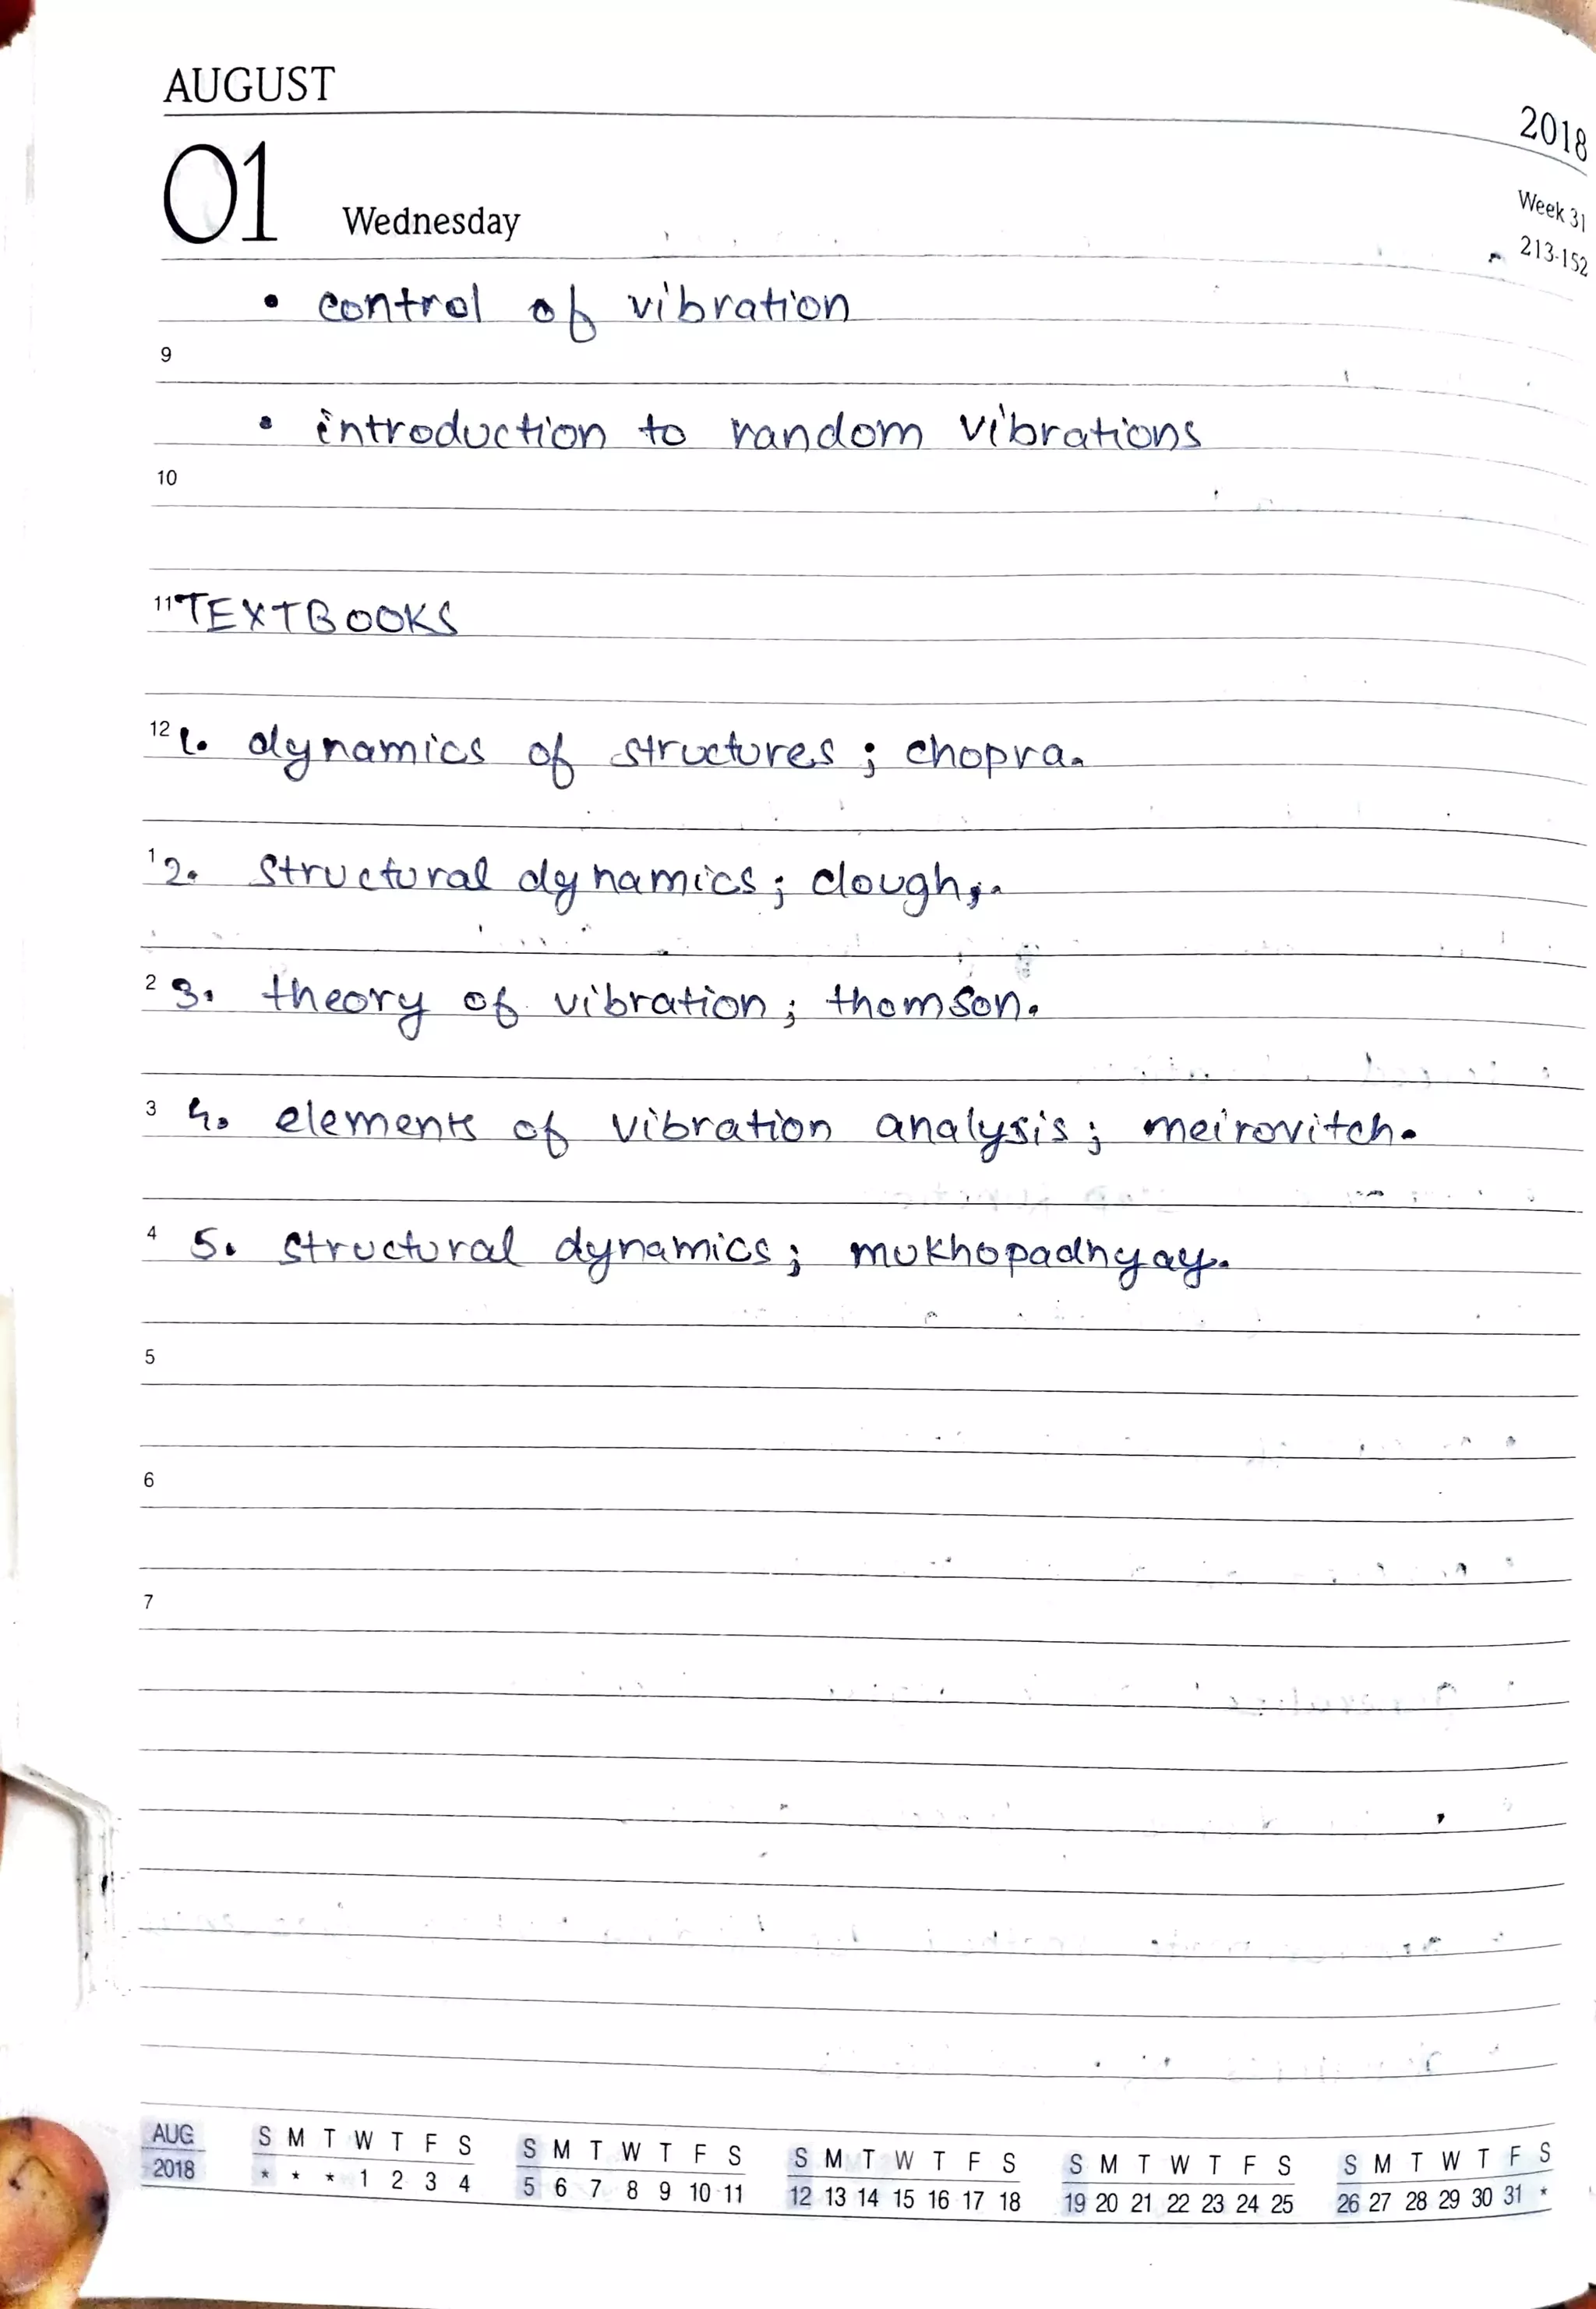 AUGUST
2018
01 Wednesday
Week 31
213-152
• control of vibration
9
• introduction to random vibrations
10
11 TEXTBOOKS
12 1. dynamics of structures ; chopra.
1 2. structural dynamics ; clough ;.
2 3. theory of vibration ; thomson.
3 4. elements of vibration analysis ; meirovitch.
4 5. structural dynamics ; mukhopadhyay.
5
6
7
AUG S M T W T F S S M T W T F S S M T W T F S S M T W T F S S M T W T F S
2018 * * * 1 2 3 4 5 6 7 8 9 10 11 12 13 14 15 16 17 18 19 20 21 22 23 24 25 26 27 28 29 30 31 *